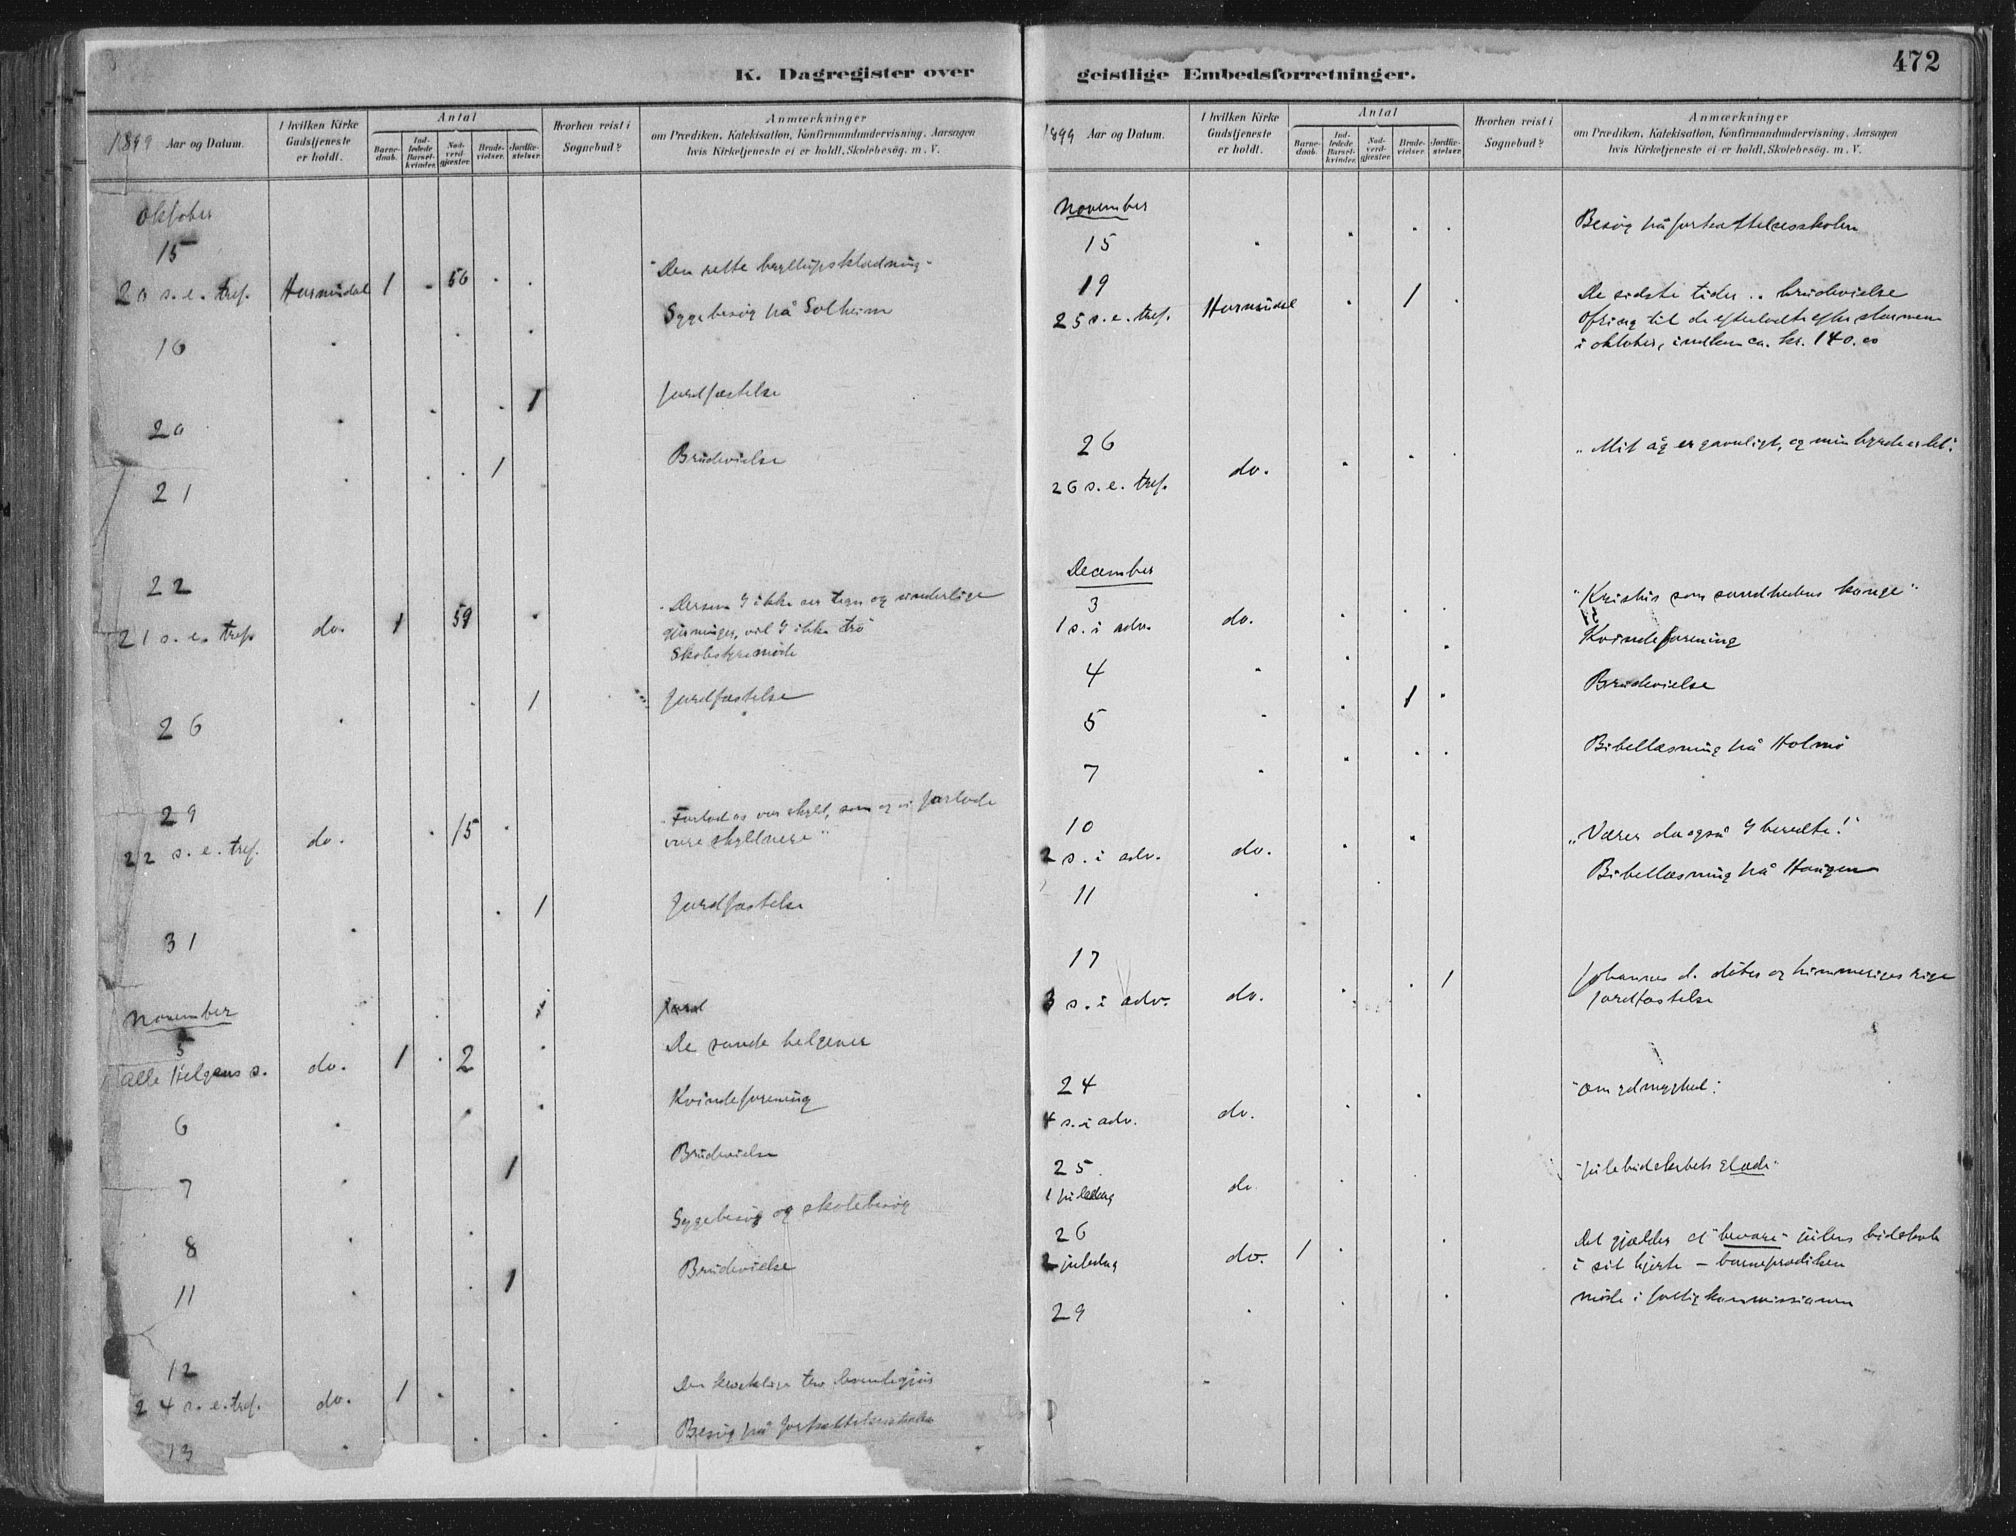 K. Dagregister over
1899 Aar og Datum.
I hvilken Kirke Gudstjeneste er holdt.
Antal
Barnedaab.
Indledede Barselkvinder.
Nadverdgjæster.
Brudevielser.
Jordfæstelser.
Hvorhen reist i Sognebud?
Anmærkninger
om Prædiken, Katekisation, Konfirmandundervisning, Aarsagen
hvis Kirketjeneste ei er holdt, Skolebesøg. m. V.
Oktober
15
"Den rette bryllupsklædning"
20 s. e. tref. 1 50
Sygebesøg på Solheim
16
Jordfæstelse 1
20
Brudevielse 1
21
22
"Dersom I ikke ser tegn og underlige
21 s. e. tref. do. 1 59 gjerninger, vil I ikke tro
Skolestyremøde
Jordfæstelse 1
26
29
"Forlad os vor skyld, som og vi forlade
22 s. e. tref. do. 15 vore skyldnere"
Jordfæstelse 1
31
November
5
De sande helgener
alle Helgens s. do. 1 2
Kvindeforening
6
Brudevielse 1
7
Sygebesøg og skolebesøg
8
Brudevielse 1
11
12
24 s. e. tref. do. 1
Besøg på fortsættelsesskolen
13
geistlige Embedsforretninger.
472
1899 Aar og Datum.
I hvilken Kirke Gudstjeneste er holdt.
Antal
Barnedaab.
Indledede Barselkvinder.
Nadverdgjæster.
Brudevielser.
Jordfæstelser.
Hvorhen reist i Sognebud?
Anmærkninger
om Prædiken, Katekisation, Konfirmandundervisning, Aarsagen
hvis Kirketjeneste ei er holdt, Skolebesøg. m. V.
November
15 Besøg på fortsættelsesskolen
19 De sidste tider. Brudevielse
25 s. e. tref. 1 Ofring til de efterladte efter stormen
i oktober, indkom ca. kr. 140.00
26 "Mit åg er gavnligt, og min byrde er let".
26 s. e. tref. do.
December
3 "Kristus som sandhedens konge"
1 s. i adv. do.
Kvindeforening
4
Brudevielse
5 1
Bibellæsning på Holmø
7
10 "Værer da også I beredte!"
2 s. i adv. do.
Bibellæsning på Haugen
11
17 Johannes d. døber og himmeriges rige
3 s. i adv. do. 1 Jordfæstelse
24 "Om ydmyghed".
4 s. i adv. do.
25 "Julebudskabets glæde"
1 juledag do.
26 Det gjælder at "bevare" julens budskab
2 juledag do. 1 i sit hjerte – barneprædiken
29